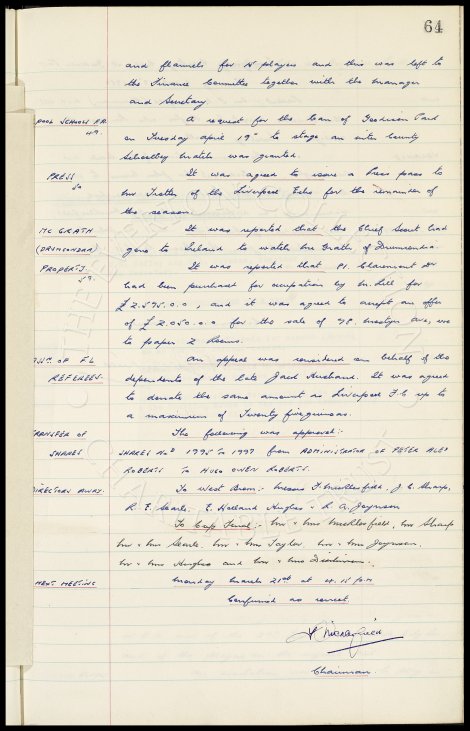 64
and flannels for 15 players and this was left to
the Finance Committee together with the manager
and Secretary
POOL SCHOOLS F.A. A request for the loan of Goodison Park
on Tuesday april 19th to stage an inter County
Schoolboy match was granted.
PRESS It was agreed to issue a Press pass to
Mr Trotter of the Liverpool Echo for the remainder of
the season.
MC GRATH It was reported that the Chief Scout had
(DRUMCONDRA) gone to Ireland to watch Mr Grath of Drumcondra.
PROPERTY. It was reported that 91. Claremont Dr
had been purchased for occupation by Mr. Gill for
£ 2.595.0.0, and it was agreed to accept an offer
of £ 2.050.0.0 for the sale of 98. Mostyn Ave, we
to paper 2 Rooms.
ASSN. OF F.L An appeal was considered on behalf of the
REFEREES. dependents of the late Jack Husband. It was agreed
to donate the same amount as Liverpool F.C up to
a maximum of Twenty five guineas.
TRANSFER OF The following was approved:-
SHARES SHARES NOS 1995 TO 1997 FROM ADMINISTRATOR OF PETER ALEX
ROBERTS TO HUGO OWEN ROBERTS.
DIRECTORS AWAY. To West Brom:- Messrs F. Micklesfield, J. C. Sharp,
R. E. Searle, E. Holland Hughes & L. A. Jeynson
To Cup Final:- Mr & Mrs Micklesfield, Mr Sharp
Mr & Mrs Searle, Mr & Mrs Taylor, Mr & Mrs Jeynson
Mr & Mrs Hughes and Mr & Mrs Dickinson.
NEXT MEETING Monday March 21st at 4.15 pm
Confirmed as correct.
Chairman.